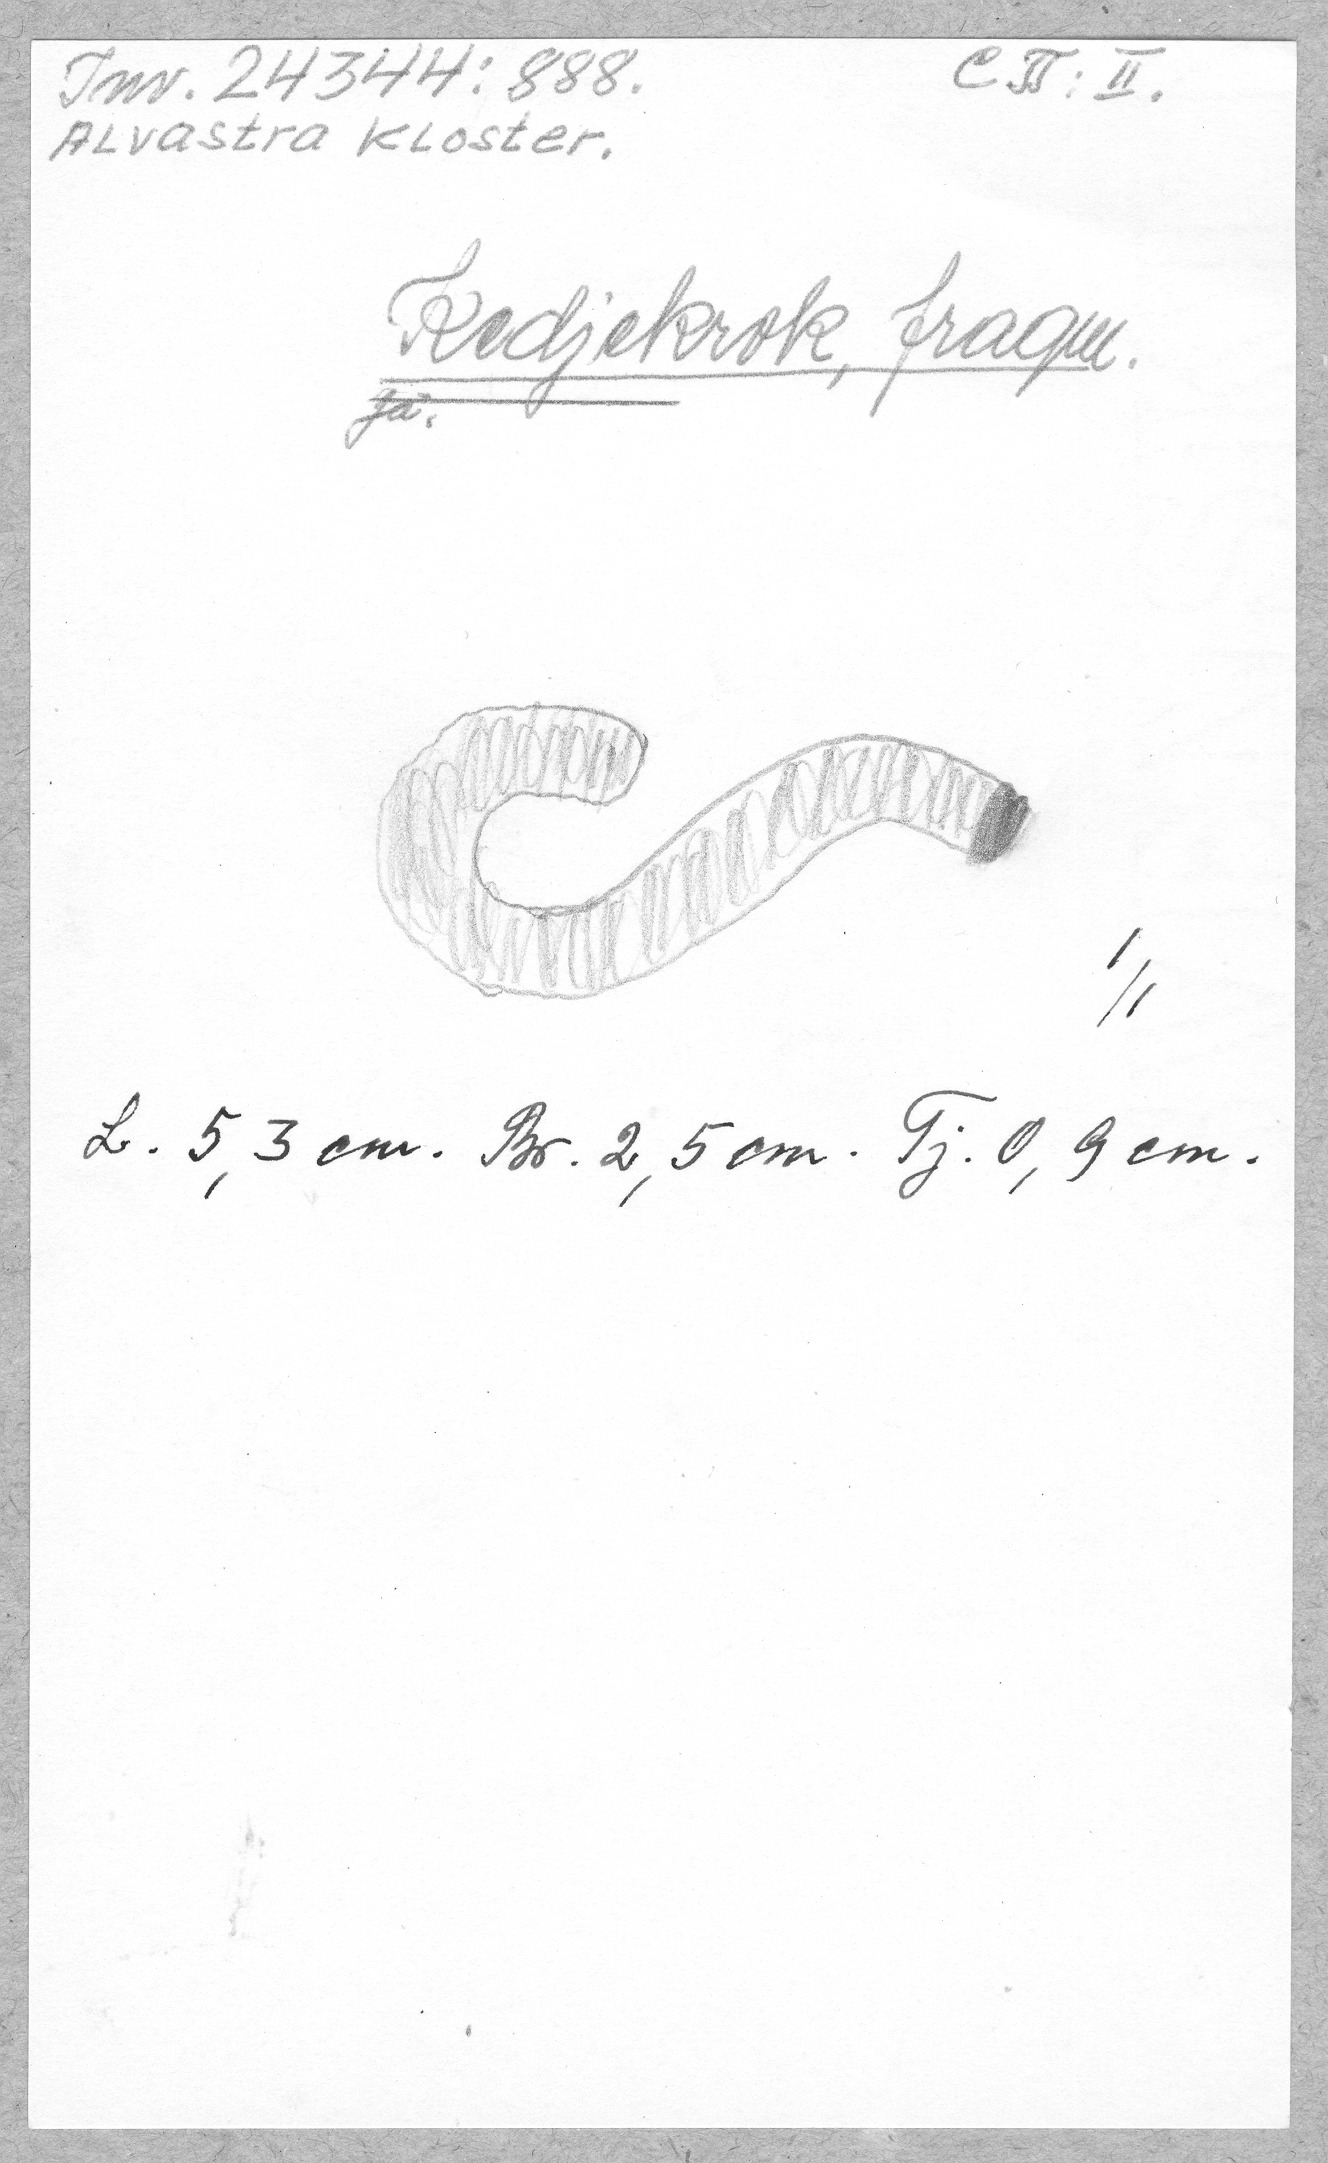 Inv. 24344:888. C II:II.
Alvastra kloster.
Kedjekrok, fragm.
Jä.
1/1
L. 5,3 cm. Br. 2,5 cm. Tj. 0,9 cm.